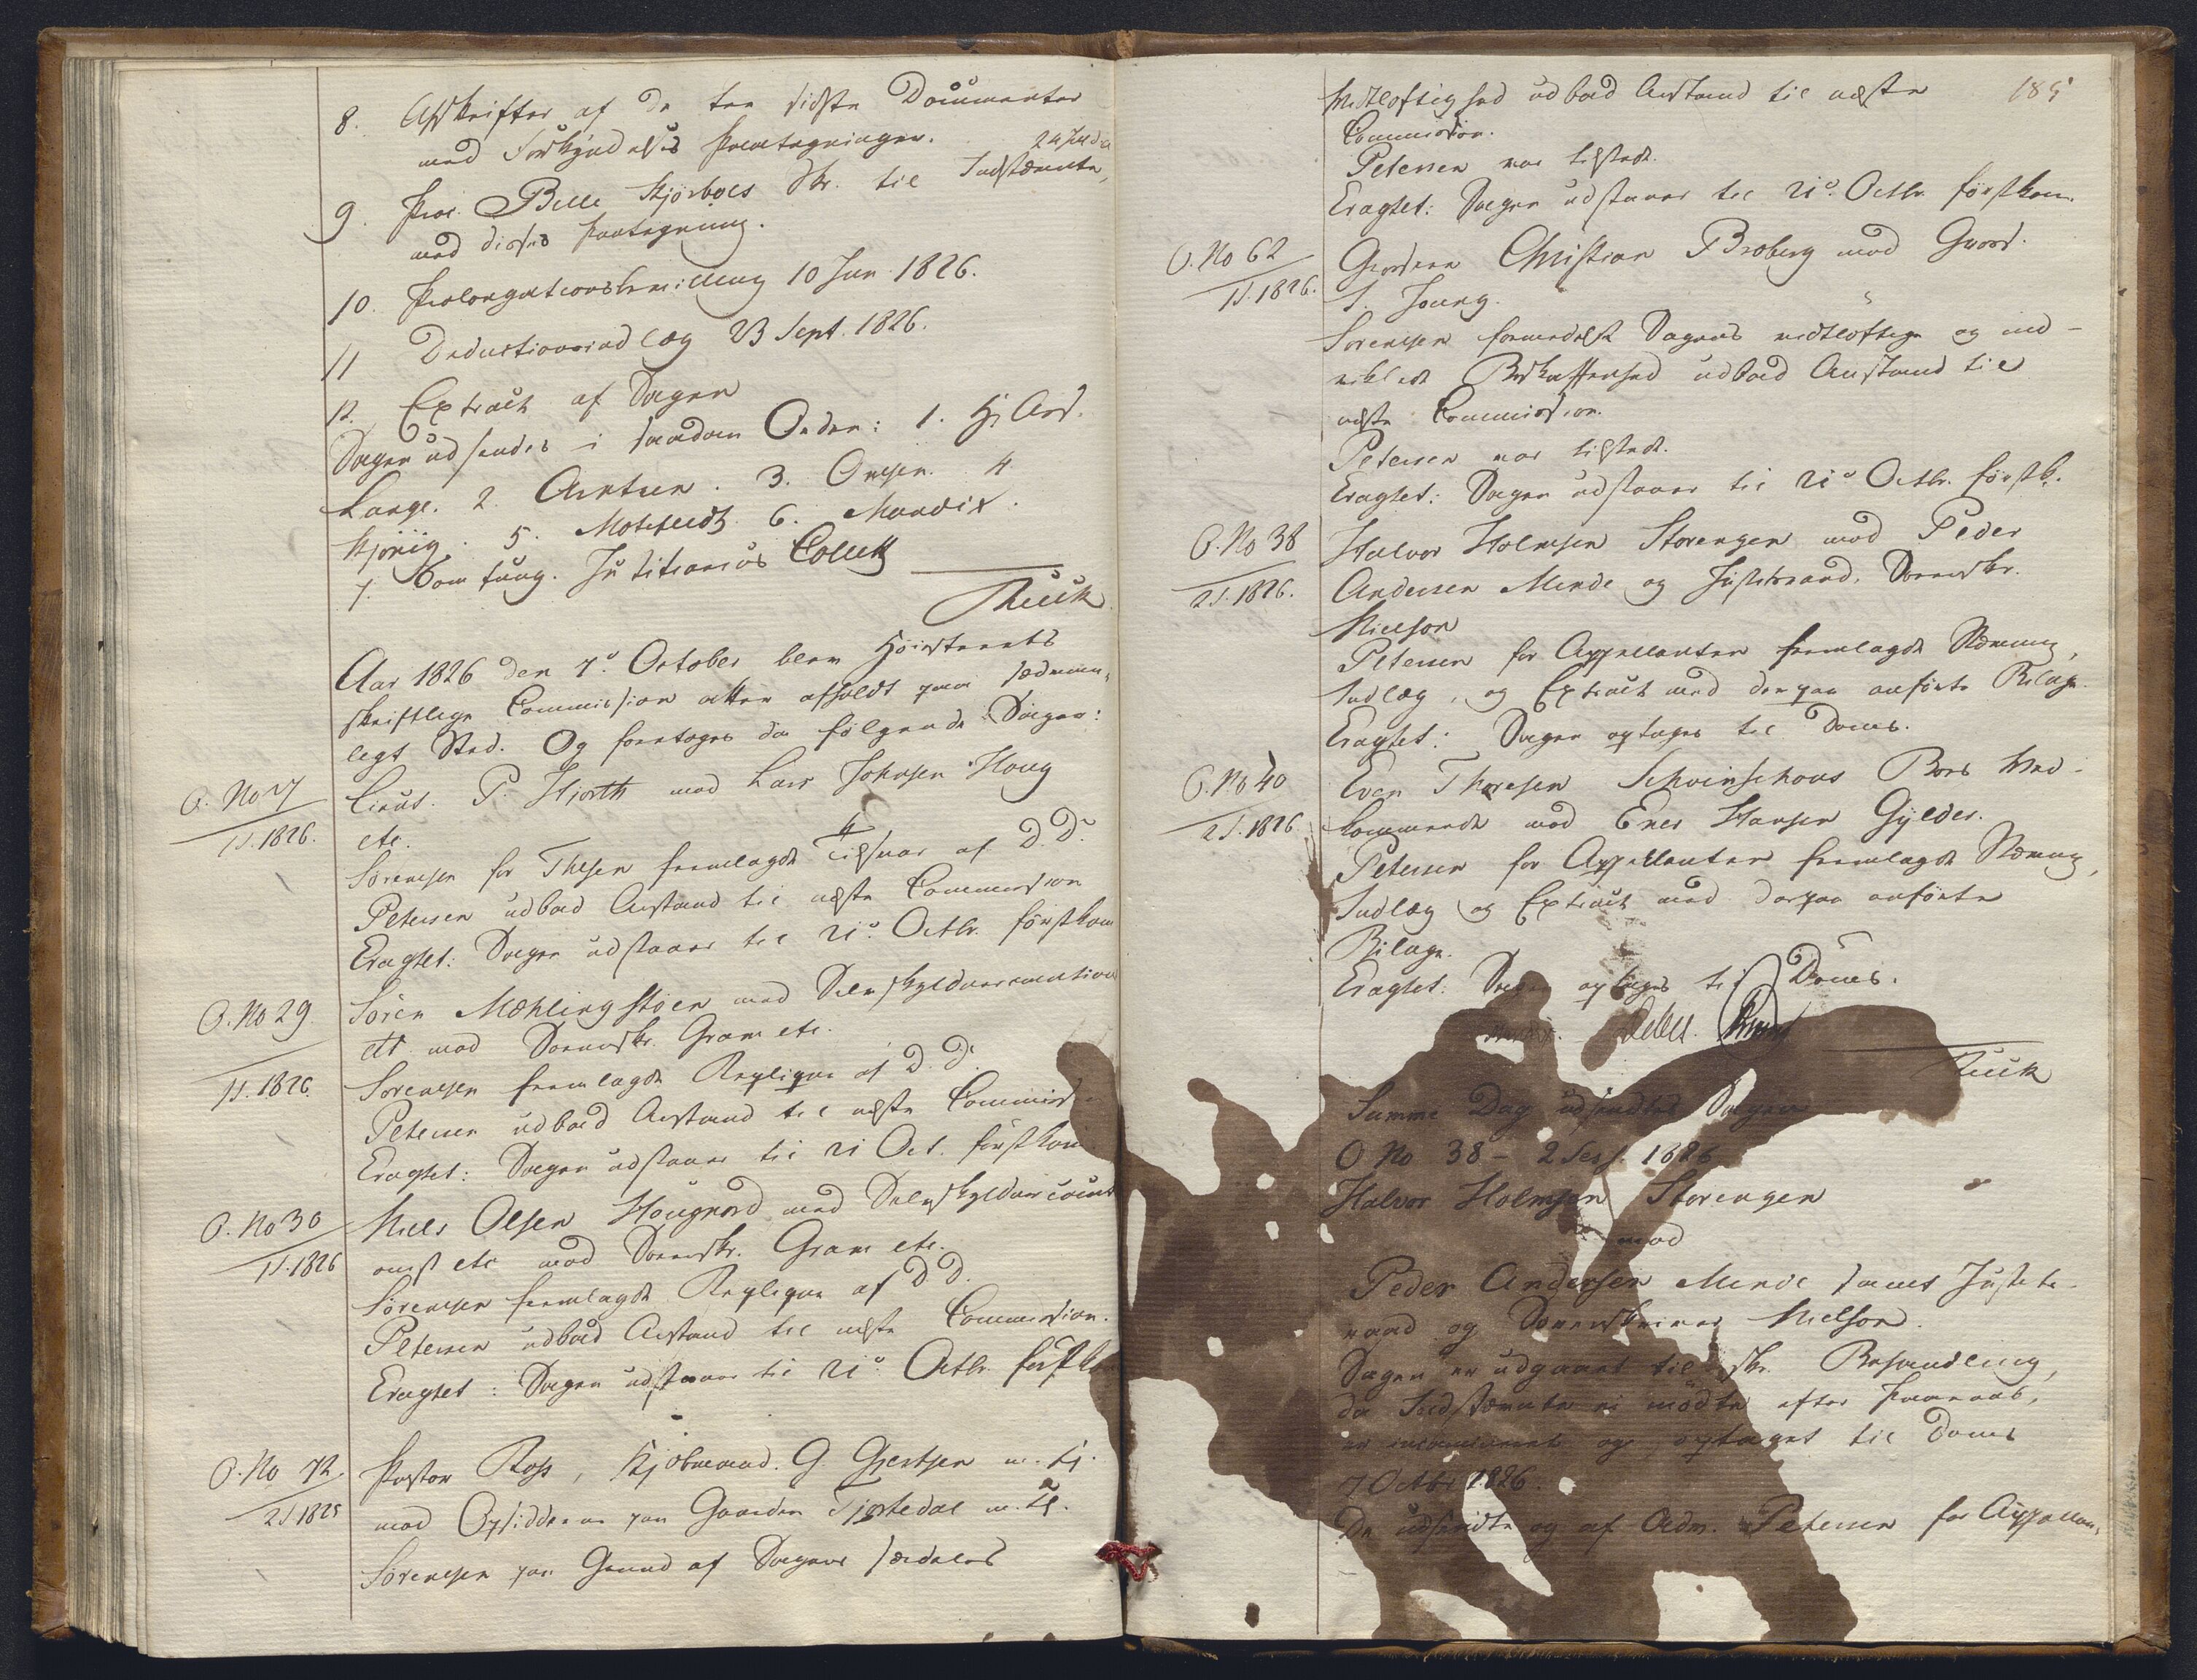 8. Afskrifter af de tre sidste Documenter
med Forkyndelses Paategninger.
9. Proc. Belle Kjörboes Skr. til Indstævnte,
med disses Paategning.
10. Prolongationsbevilling 10 Jun 1826.
11 Deductionsindlæg 23 Sept. 1826.
12. Extract af Sagen
Sagen udsendes i saadan Orden: 1. Hj. Ass.
Lange. 2. Arntzen. 3. Omsen. 4
Hjorüg. 5. Motzfeldt. 6. Mandix.
7. Com fung. Justitiarius Collett
Ruck
Aar 1826 den 7de October blev Höiesterets
skriftlige Commission atter afholdt paa sædvan-
ligt Sted. Og foretoges da følgende Sager:
O. No 7
1 S. 1826.
Lieut. P. Hjorth mod Lars Johnsen Houg
etc.
Sörensen for Thesen fremlagde Tilsvar af D.D.
Petersen udbad Anstand til næste Commission
Eragtet: Sagen udstaaer til 21de Octbr. förstkom
O. No 29
1 S. 1826.
Sören Mæhlingstöen med Selvskyldnercaution
etc mod Sorenskr. Gram etc.
Sörensen fremlagde Replique af D.D.
Petersen udbad Anstand til næste Commiss
Eragtet: Sagen udstaaer til 21 Oct. förstkom
O. No 30
1 S. 1826
Niels Olsen Hougnord med Selvskyldnercaut
onist etc mod Sorenskr. Gram etc.
Sörensen fremlagde Replique af D D.
Petersen udbad Anstand til næste Commission.
Eragtet: Sagen udstaaer til 21de Octbr. förstkom
O. No 72.
2 S 1825
Pastor Ross, Kjöbmand G. Giertsen m. fl.
mod Opsidderne paa Gaarden Tjostedal m. fl.
Sörensen paa Grund af Sagens særdeles
185
Vidtløftighed udbad Anstand til næste
Commission.
Petersen var tilstede.
Eragtet: Sagen udstaaer til 21de Octbr. förstkom.
O. No 62
1 S. 1826.
Grosserer Christian Broberg mod Gross.
S. Joung.
Sörensen formedelst Sagens vidtløftige og ind-
viklede Beskaffenhed udbad Anstand til
næste Commission.
Petersen var tilstede.
Eragtet: Sagen udstaaer til 21de Octbr. förstk.
O. No 38
2 S. 1826.
Halvor Holmsen Storengen mod Peder
Andersen Minde og Justitsraad, Sorenskr.
Nielson
Petersen for Appellanten fremlagde Stævning,
Indlæg, og Extract med derpaa anförte Bilage.
Eragtet: Sagen optages til Doms.
O. No 40
2 S. 1826.
Even Thoresen Schoinschous Boes Ved-
kommende mod Ener Hansen Gylder.
Petersen for Appellanten fremlagde Stævning,
Indlæg og Extract med derpaa anförte
Bilage.
Eragtet: Sagen optages til Doms.
Debes.
Ruck
Samme Dag udsendtes Sagen
O No 38 - 2 Sess. 1826
Halvor Holmsen Storengen
mod
Peder Andersen Minde samt Justits-
raad og Sorenskriver Nielson.
Sagen er udgaaet til skr. Behandling,
da Indstævnte ei mödte efter Paaraab,
er incamineret og optaget til Doms
7 Octbr 1826.
De udsendte og af Adv. Petersen for Appellan-